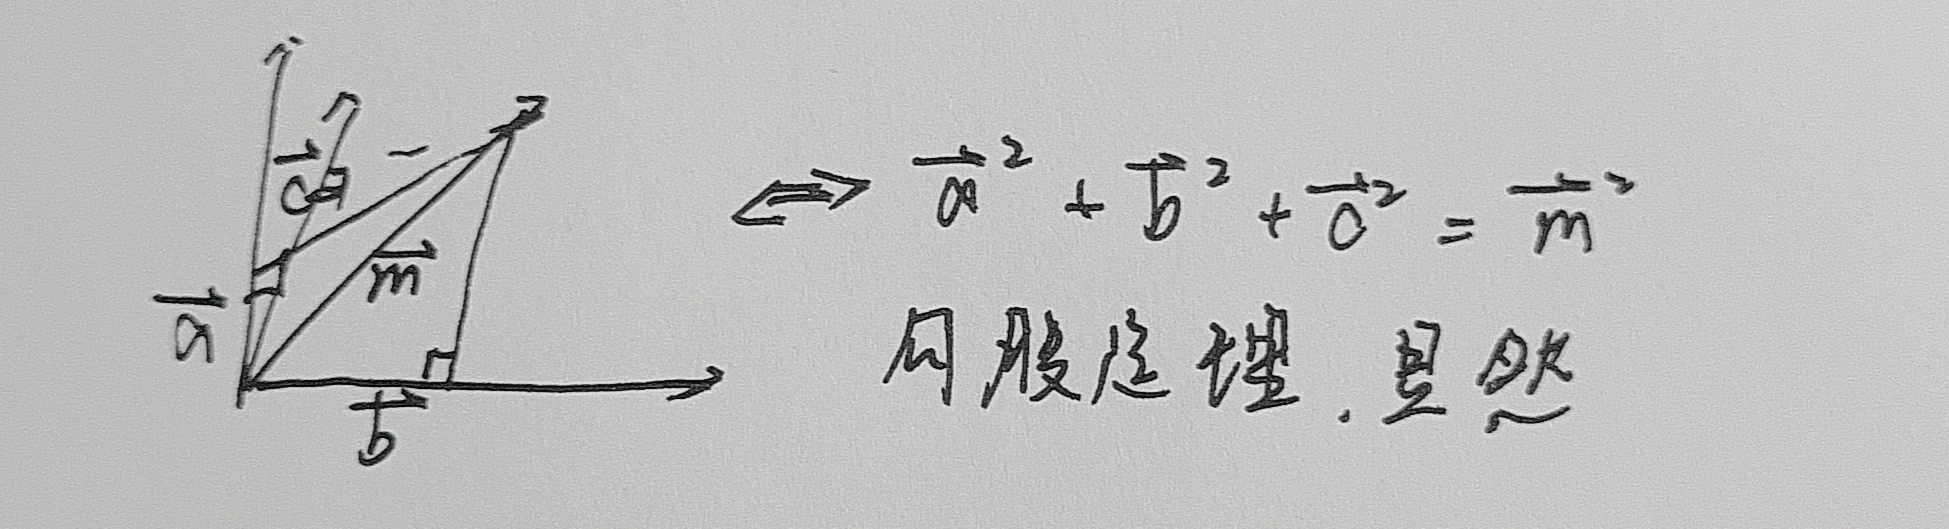 c⃗
m⃗
a⃗
b⃗
⇔ a⃗² + b⃗² + c⃗² = m⃗²
勾股定理.显然